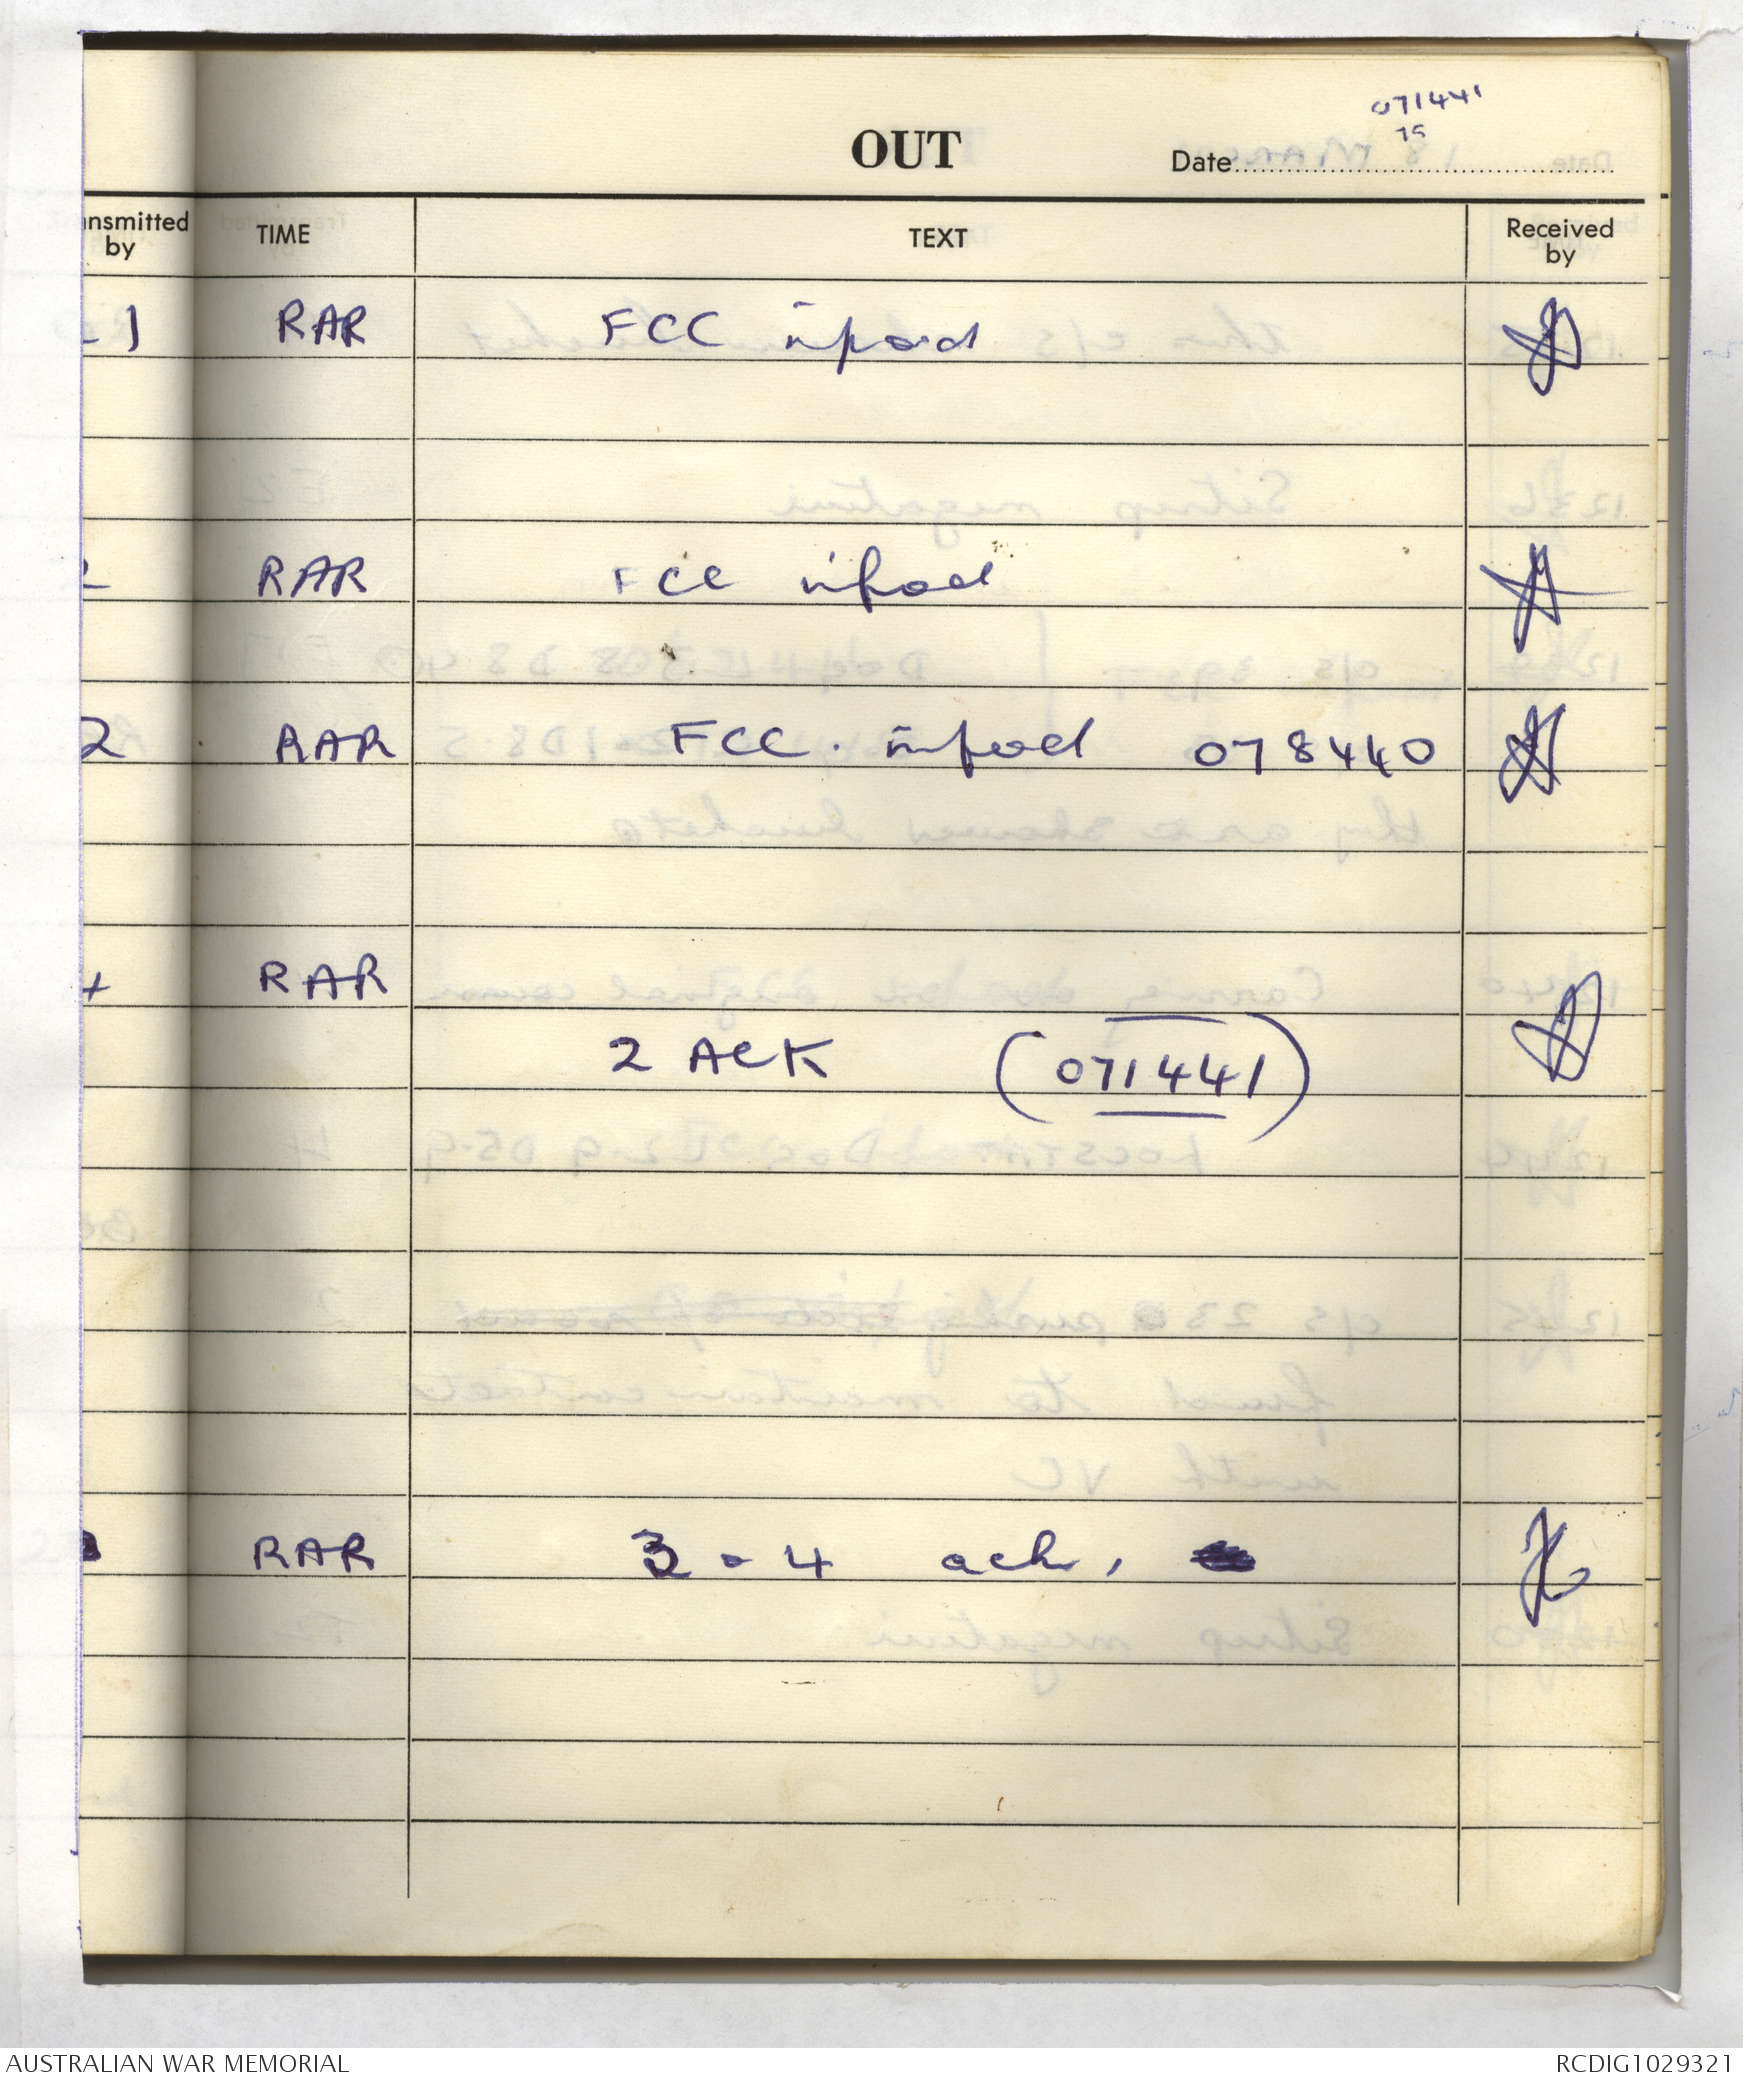 071441
75
OUT
Date
ansmitted by
TIME
TEXT
Received by
1 RAR FCC infod
RAR FCC infod
2 RAR FCC. infod 078440
RAR
2 ACK (071441)
RAR 3 - 4 ack,
AUSTRALIAN WAR MEMORIAL
RCDIG1029321